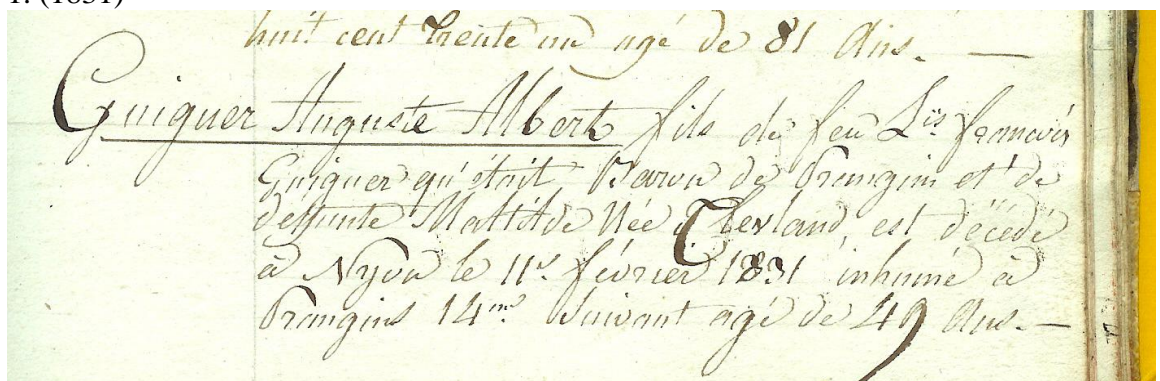 1. (1831)
huit cent trente un agé de 81 Ans. —
Guiguer Auguste Albert fils de feu Ls. francois
Guiguer qu'était Baron de Prangins et de
deffunte Mattilde Née Cleveland, est décédé
à Nyon le 11e. février 1831 inhumé à
Prangins 14me. Suivant agé de 49 Ans. —